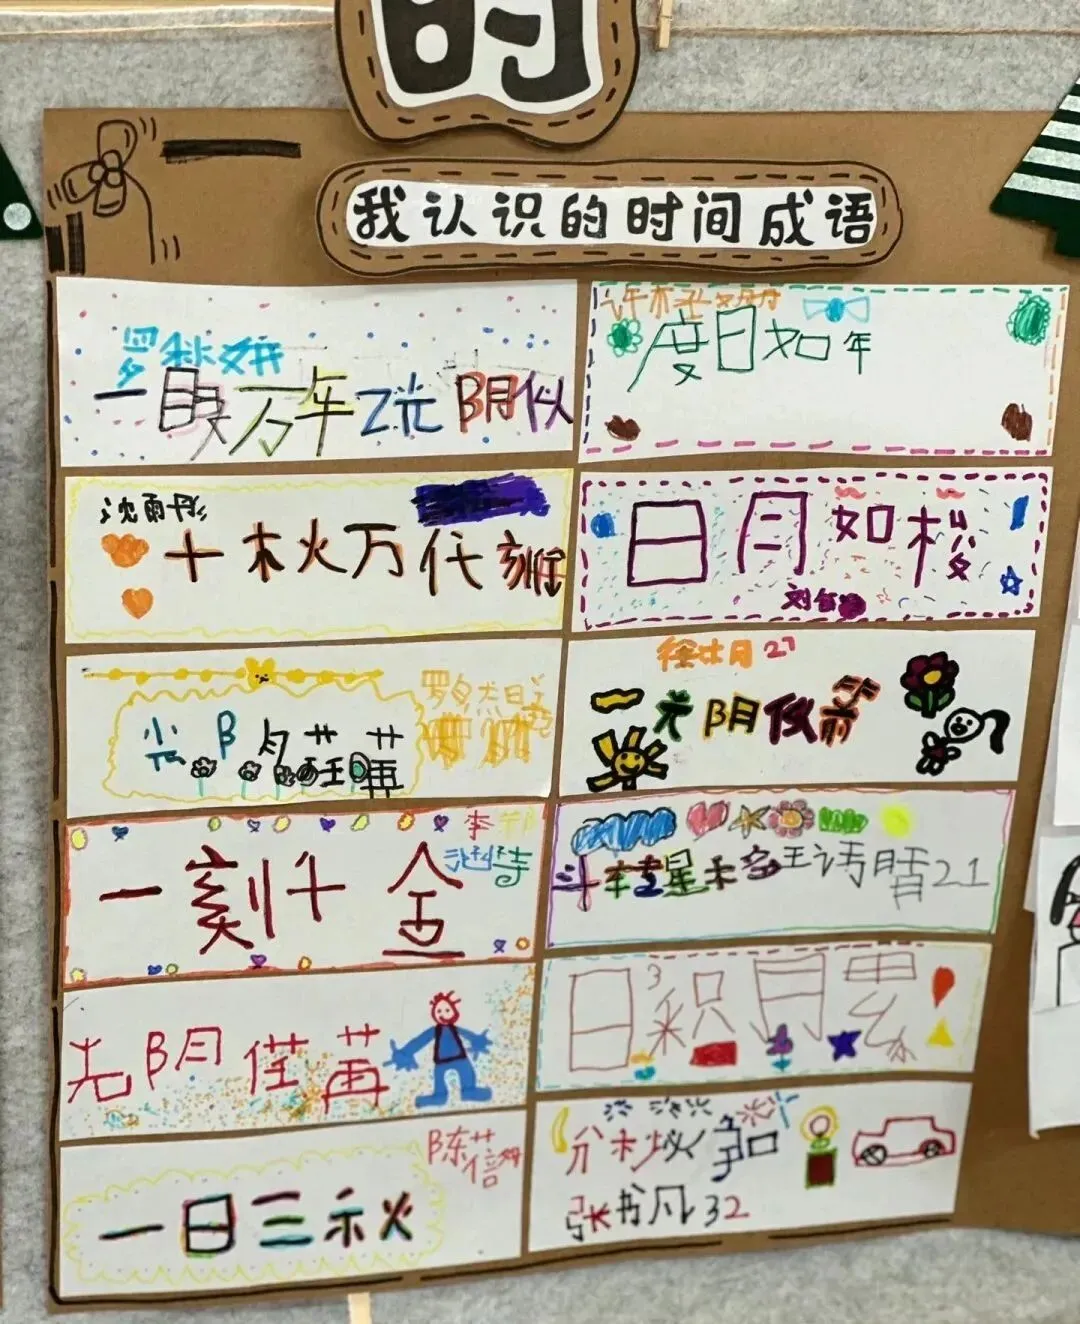 的
我认识的时间成语
罗秋妍
一眼万年 光阴似
度日如年
沈雨彤
十秋万代
日月如梭
刘
光阴
27
一光阴似箭
李
一刻千金
斗转星末多王诗腈21
光阴荏苒
日积月累
陈蓓
一日三秋
分秒必争
张书凡32